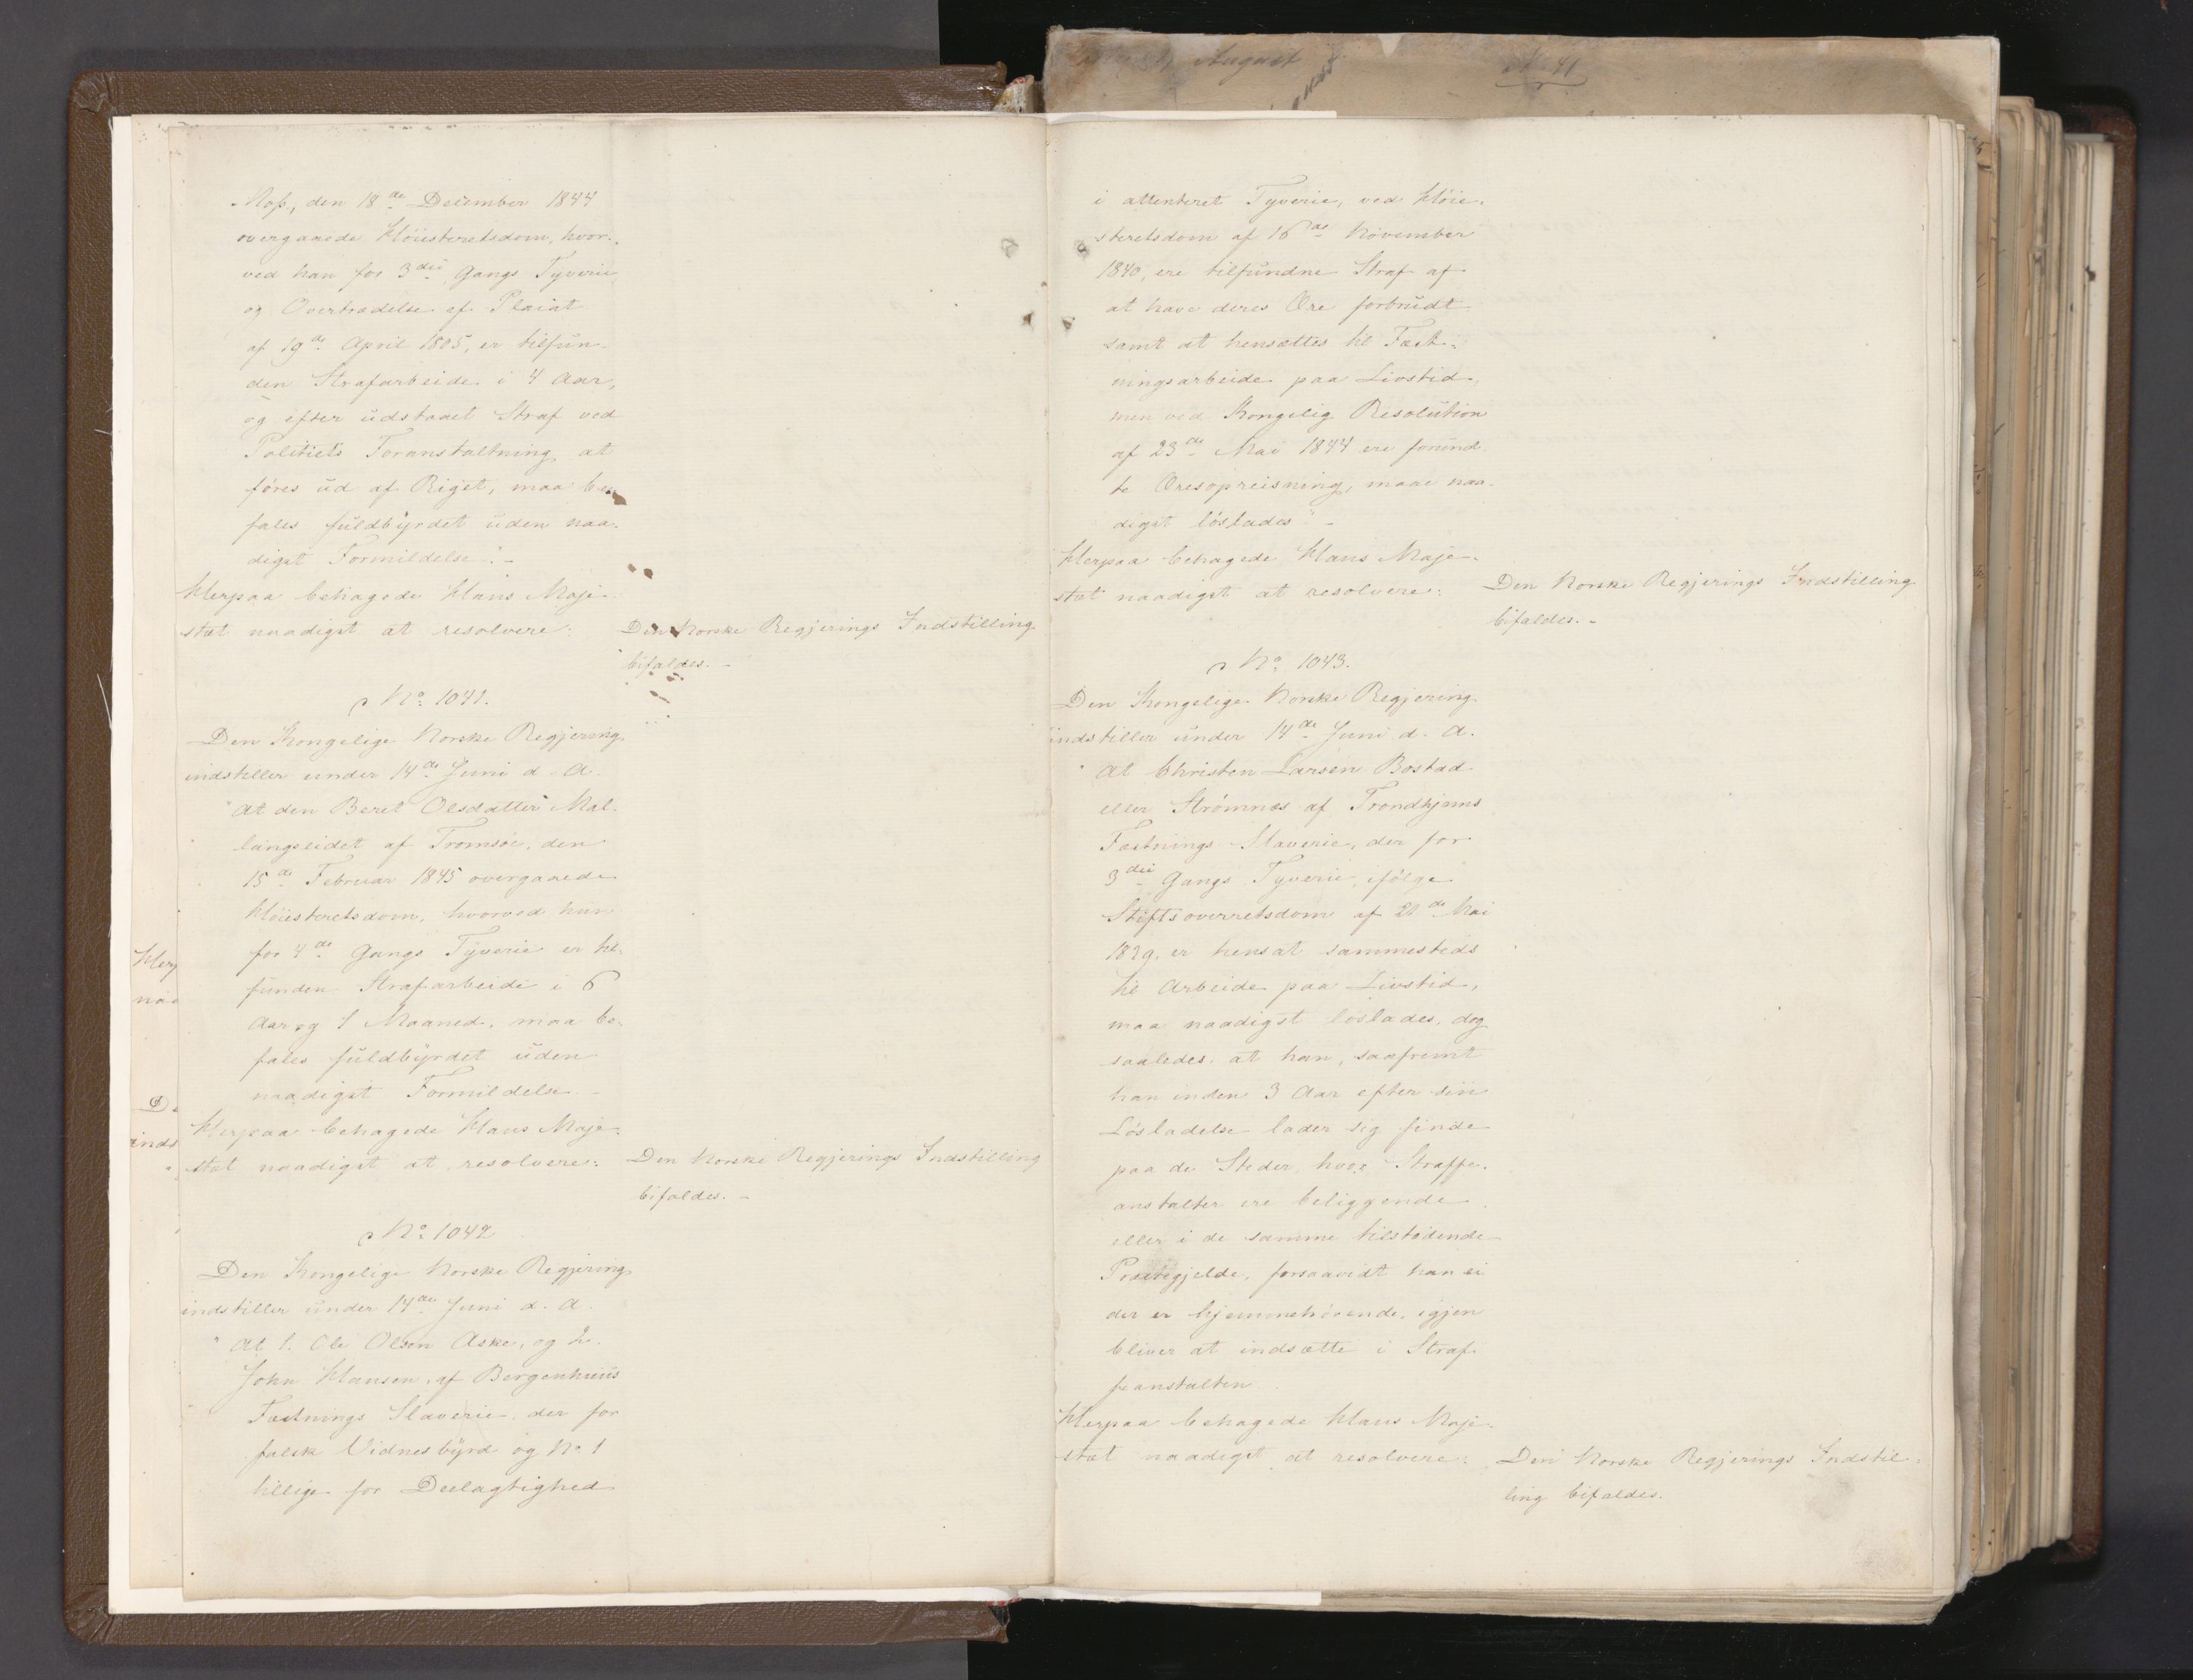 Moss, den 18de December 1844
overgaaede Höiesteretsdom, hvor-
ved han for 3die Gangs Tyverie
og Overtrædelse af Placat
af 19de April 1805, er tilfun-
den Strafarbeide i 4 Aar,
og efter udstaaet Straf ved
Politiets Foranstaltning at
föres ud af Riget, maa be-
fales fuldbyrdet uden naa-
digst Formildelse". -
Herpaa behagede Hans Maje-
stæt naadigst at resolvere:
Den Norske Regjerings Indstilling
bifaldes. -
No 1041.
Den Kongelige Norske Regjering
indstiller under 14de Juni d. A.
"At den Beret Olsdatter Mal-
langseidet af Tromsöe, den
15de Februar 1845 overgaaede
Höiesteretsdom, hvorved hun
for 4de Gangs Tyverie er til-
funden Strafarbeide i 6
Aar og 1 Maaned, maa be-
fales fuldbyrdet uden
naadigst Formildelse. -
Herpaa behagede Hans Maje-
stæt naadigst at resolvere:
Den Norske Regjerings Indstilling
bifaldes. -
No 1042
Den Kongelige Norske Regjering
indstiller under 14de Juni d. A.
"At 1. Ole Olsen Aske, og 2.
John Hansen, af Bergenhuus
Fæstnings Slaverie, der for
falsk Vidnesbyrd og No 1
tillige for Deelagtighed
Herp
naa
De
inds
August
No 41
i attenteret Tyverie, ved Höie-
steretsdom af 16de November
1840, ere tilfundne Straf af
at have deres Ære forbrudt
samt at hensættes til Fæst-
ningsarbeide paa Livstid,
men ved Kongelig Resolution
af 23de Mai 1844 ere forund-
te Æresopreisning, maae naa-
digst löslades". -
Herpaa behagede Hans Maje-
stæt naadigst at resolvere:
Den Norske Regjerings Indstilling
bifaldes. -
No 1043.
Den Kongelige Norske Regjering
indstiller under 14de Juni d. A.
"At Christen Larsen Bostad
eller Strömnæs af Trondhjems
Fæstnings Slaverie, der for
3die Gangs Tyverie, ifölge
Stiftsoverretsdom af 21de Mai
1829, er hensat sammesteds
til Arbeide paa Livstid,
maa naadigst löslades, dog
saaledes at han, saafremt
han inden 3 Aar efter sin
Lösladelse lader sig finde
paa de Steder, hvor Straffe-
anstalter ere beliggende
eller i de samme tilstödende
Præstegjelde, forsaavidt han ei
der er hjemmehörende, igjen
bliver at indsætte i Straf-
feanstalten
Herpaa behagede Hans Maje-
stæt naadigst at resolvere:
Den Norske Regjerings Indstil-
ling bifaldes.